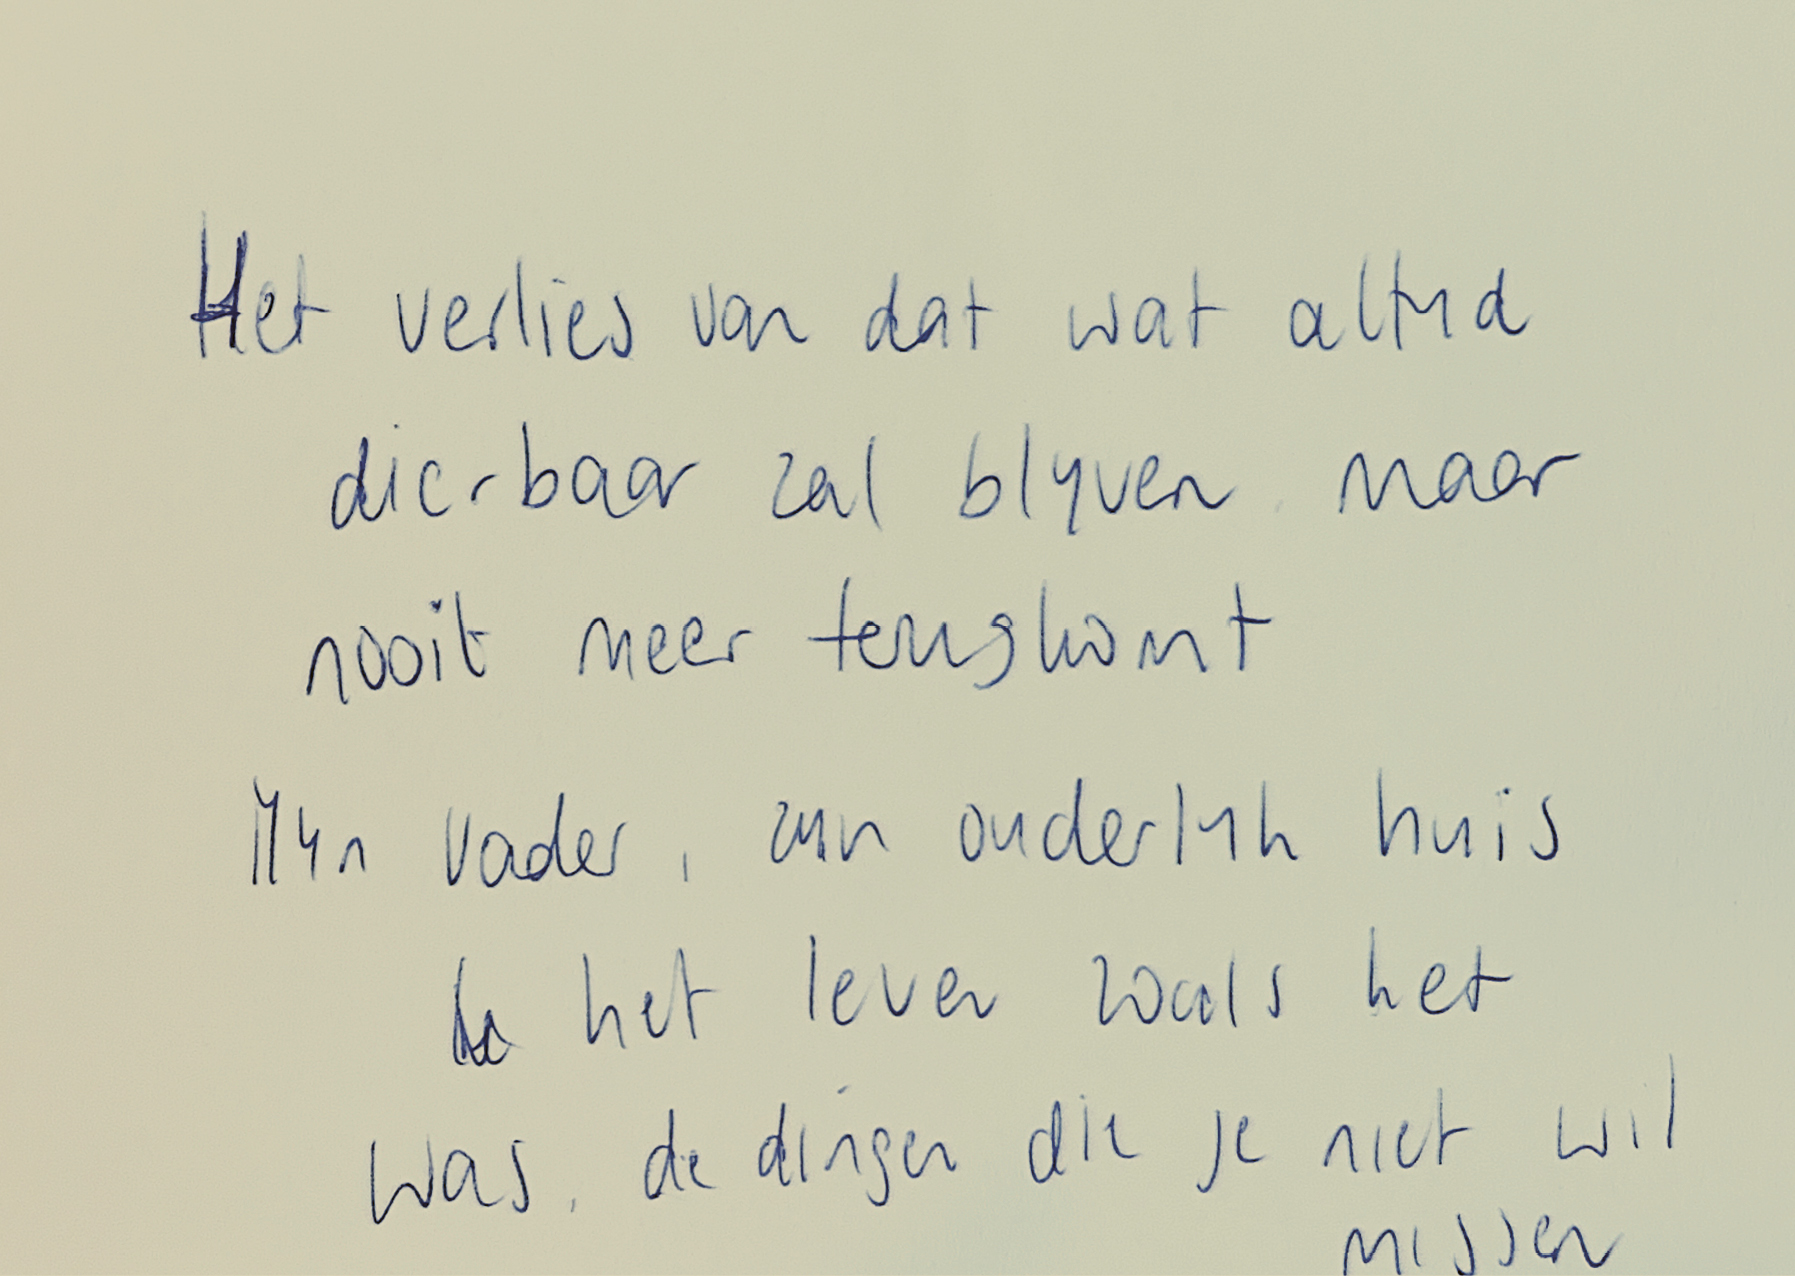 Het verlies van dat wat altijd
dierbaar zal blijven maar
nooit meer terugkomt
Mijn vader, zijn ouderlijk huis
het leven zoals het
was, de dingen die je niet wil
missen